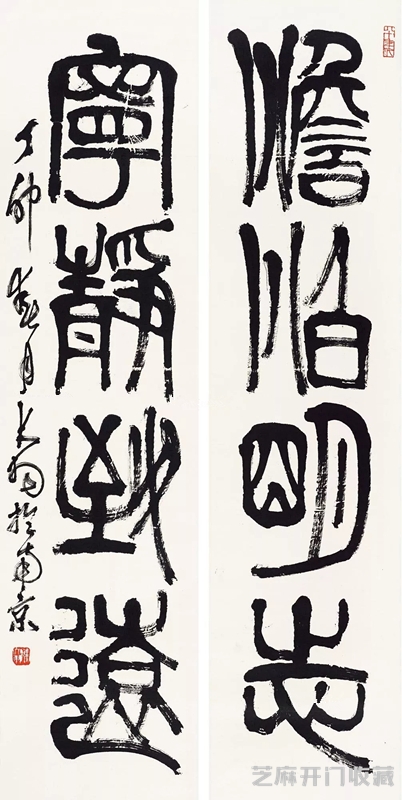 澹泊明志
寧靜致遠
丁卯春月大羽於南京
芝麻开门收藏